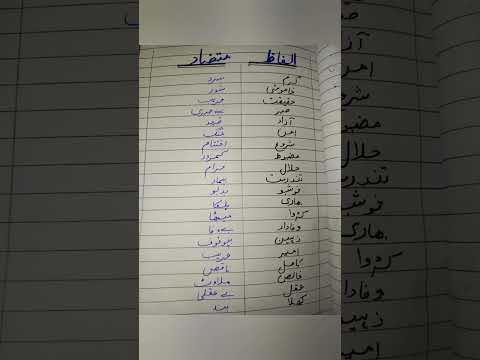 الفاظ متضاد
گرم سرد
خاموشی شور
حقیقت فریب
صبر بے صبری
آزاد قید
امن جنگ
شروع اختتام
مضبوط کمزور
حلال حرام
تندرست بیمار
خوشبو بدبو
بھاری ہلکا
کڑوا میٹھا
وفادار بے وفا
ذہین بیوقوف
امیر غریب
کامل ناقص
خالص ملاوٹ
عقل بے عقلی
کھلا بند